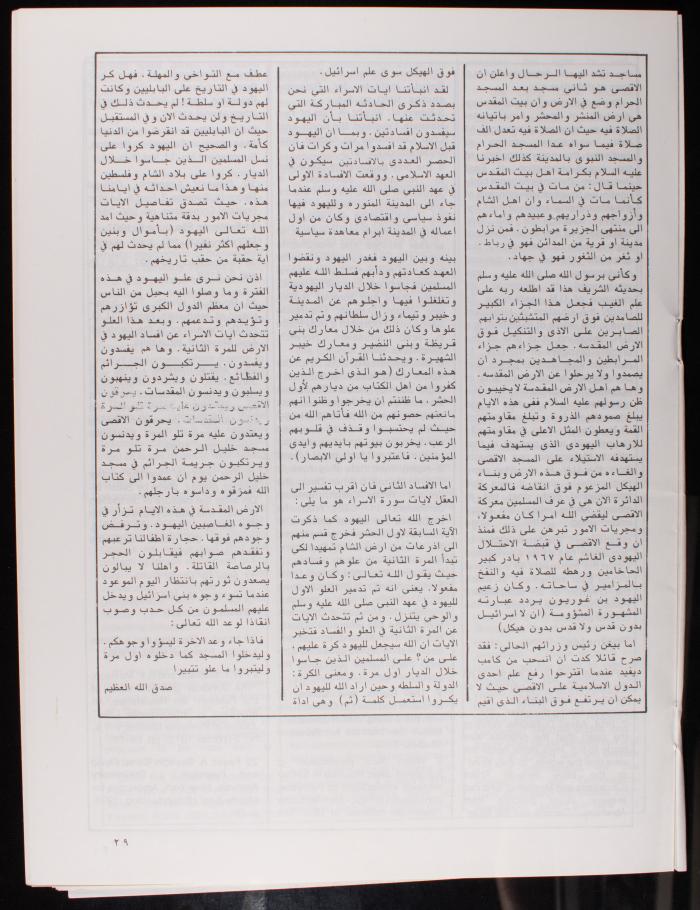 مساجد تشد اليها الرحال واعلن ان
الاقصى هو ثاني سجد بعد المسجد
الحرام وضع في الارض وان بيت المقدس
هي ارض المنشر والمحشر وامر باتيانه
الصلاة فيه حيث ان الصلاة فيه تعدل الف
صلاة فيما سواه عدا المسجد الحرام
والمسجد النبوى بالمدينة كذلك اخبرنا
عليه السلام بكرامة اهل بيت المقدس
حينما قال: من مات في بيت المقدس
كأنما مات في السماء وان اهل الشام
وأزواجهم وذراريهم وعبيدهم واماءهم
الى منتهى الجزيرة مرابطون. فمن نزل
مدينة او قرية من المدائن فهو في رباط.
او ثغر من الثغور فهو في جهاد.
وكأنى برسول الله صلى الله عليه وسلم
بحديثه الشريف هذا قد اطلعه ربه على
علم الغيب فجعل هذا الجزاء الكبير
للصامدين فوق ارضهم المتشبثين بترابهم
الصابرين على الاذى والتنكيل فوق
الارض المقدسه. جعل جزاءهم جزاء
المرابطين والمجاهدين بمجرد ان
يصمدوا ولا يرحلوا عن الارض المقدسه.
وها هم اهل الارض المقدسة لا يخيبون
ظن رسولهم عليه السلام ففى هذه الايام
يبلغ صمودهم الذروة وتبلغ مقاومتهم
القمة ويعطون المثل الاعلى في مقاومتهم
للارهاب اليهودى الذى يستهدف فيما
يستهدفه الاستيلاء على المسجد الاقصى
والغاءه من فوق هذه الارض وبناء
الهيكل المزعوم فوق انقاضه فالمعركة
الدائرة الآن هي في عرف المسلمين معركة
الاقصى ليقضي الله امرا كان مفعولا.
ومجريات الامور تبرهن على ذلك فمنذ
ان وقع الاقصى في قبضة الاحتلال
اليهودى الغاشم عام ١٩٦٧ بادر كبير
الحاخامين ورهطه للصلاة فيه والنفخ
بالمزامير في ساحاته. وكان زعيم
اليهود بن غوريون يردد عبارته
المشهورة المشؤومة (ان لا اسرائيل
بدون قدس ولا قدس بدون هيكل)
اما بيغن رئيس وزرائهم الحالى: فقد
صرح قائلا كدت ان انسحب من كامب
ديفيد عندما اقترحوا رفع علم احدى
الدول الاسلامية على الاقصى حيث لا
يمكن ان يرتفع فوق البناء الذى اقيم
فوق الهيكل سوى علم اسرائيل.
لقد انبأتنا ايات الاسراء التى نحن
بصدد ذكرى الحادثه المباركة التى
تحدثت عنها. انبأتنا بأن اليهود
سيفسدون افسادتين. وبما ان اليهود
قبل الاسلام قد افسدوا مرات وكرات فان
الحصر العددى بالافسادتين سيكون في
العهد الاسلامى. ووقعت الافسادة الاولى
في عهد النبى صلى الله عليه وسلم عندما
جاء الى المدينة المنوره ولليهود فيها
نفوذ سياسى واقتصادى وكان من اول
اعماله في المدينة ابرام معاهدة سياسية
بينه وبين اليهود فغدر اليهود ونقضوا
العهد كعادتهم ودأبهم فسلط الله عليهم
المسلمين فجاسوا خلال الديار اليهودية
وتغلغلوا فيها واجلوهم عن المدينة
وخيبر وتيماء وزال سلطانهم وتم تدمير
علوها وكان ذلك من خلال معارك بنى
قريظة وبنى النضير ومعارك خيبر
الشهيرة. ويحدثنا القرآن الكريم عن
هذه المعارك (هو الذى اخرج الذين
كفروا من اهل الكتاب من ديارهم لأول
الحشر. ما ظننتم ان يخرجوا وظنوا انهم
مانعتهم حصونهم من الله فأتاهم الله من
حيث لم يحتسبوا وقذف في قلوبهم
الرعب. يخربون بيوتهم بايديهم وايدى
المؤمنين. فاعتبروا يا اولى الابصار).
اما الافساد الثانى فان اقرب تفسير الى
العقل لايات سورة الاسراء هو ما يلي:
اخرج الله تعالى اليهود كما ذكرت
الآية السابقة لاول الحشر فخرج قسم منهم
الى اذرعات من ارض الشام تمهيدا لكى
تبدأ المرة الثانية من علوهم وفسادهم
حيث يقول الله تعالى: وكان وعدا
مفعولا. يعنى انه تم تدمير العلو الاول
لليهود في عهد النبى صلى الله عليه وسلم
والوحى يتنزل. ومن ثم تتحدث الايات
عن المرة الثانية في العلو والفساد فتخبر
الايات ان الله سيجعل لليهود كرة عليهم.
على من؟ على المسلمين الذين جاسوا
خلال الديار اول مرة. ومعنى الكرة:
الدولة والسلطه وحين اراد الله لليهود ان
يكروا استعمل كلمة (ثم) وهى اداة
عطف مع التواخى والمهلة. فهل كر
اليهود في التاريخ على البابليين وكانت
لهم دولة او سلطة! لم يحدث ذلك في
التاريخ ولن يحدث الان وفي المستقبل
حيث ان البابليين قد انقرضوا من الدنيا
كأمة. والصحيح ان اليهود كروا على
نسل المسلمين الذين جاسوا خلال
الديار. كروا على بلاد الشام وفلسطين
منها وهذا ما نعيش احداثه في ايامنا
هذه. حيث تصدق تفاصيل الايات
مجريات الامور بدقة متناهية وحيث امد
الله تعالى اليهود (بأموال وبنين
وجعلهم اكثر نفيرا) مما لم يحدث لهم في
اية حقبة من حقب تاريخهم.
اذن نحن نرى علو اليهود في هذه
الفترة وما وصلوا اليه بحبل من الناس
حيث ان معظم الدول الكبرى تؤازرهم
وتؤيدهم وتدعمهم. وبعد هذا العلو
تتحدث ايات الاسراء عن افساد اليهود في
الارض للمرة الثانية. وها هم يفسدون
ويفسدون. يرتكبون الجرائم
والفظائع. يقتلون ويشردون وينهبون
ويسلبون ويدنسون المقدسات. يحرقون الاقصى
ويعتدون عليه مرة تلو المرة ويدنسون
مسجد خليل الرحمن مرة تلو مرة
ويرتكبون جريمة الجرائم في مسجد
خليل الرحمن يوم ان عمدوا الى كتاب
الله فمزقوه وداسوه بارجلهم.
الارض المقدسة في هذه الايام تزأر في
وجوه الغاصبين اليهود. وترفض
وجودهم فوقها. حجارة اطفالنا ترعبهم
وتفقدهم صوابهم فيقابلون الحجر
بالرصاصة القاتلة. واهلنا لا يبالون
يصعدون ثورتهم بانتظار اليوم الموعود
عندما تسوء وجوه بنى اسرائيل ويدخل
عليهم المسلمون من كل حدب وصوب
انقاذا لوعد الله تعالى:
فاذا جاء وعد الاخرة ليسؤوا وجوهكم.
وليدخلوا المسجد كما دخلوه اول مرة
وليتبروا ما علو تتبيرا
صدق الله العظيم
٢٩